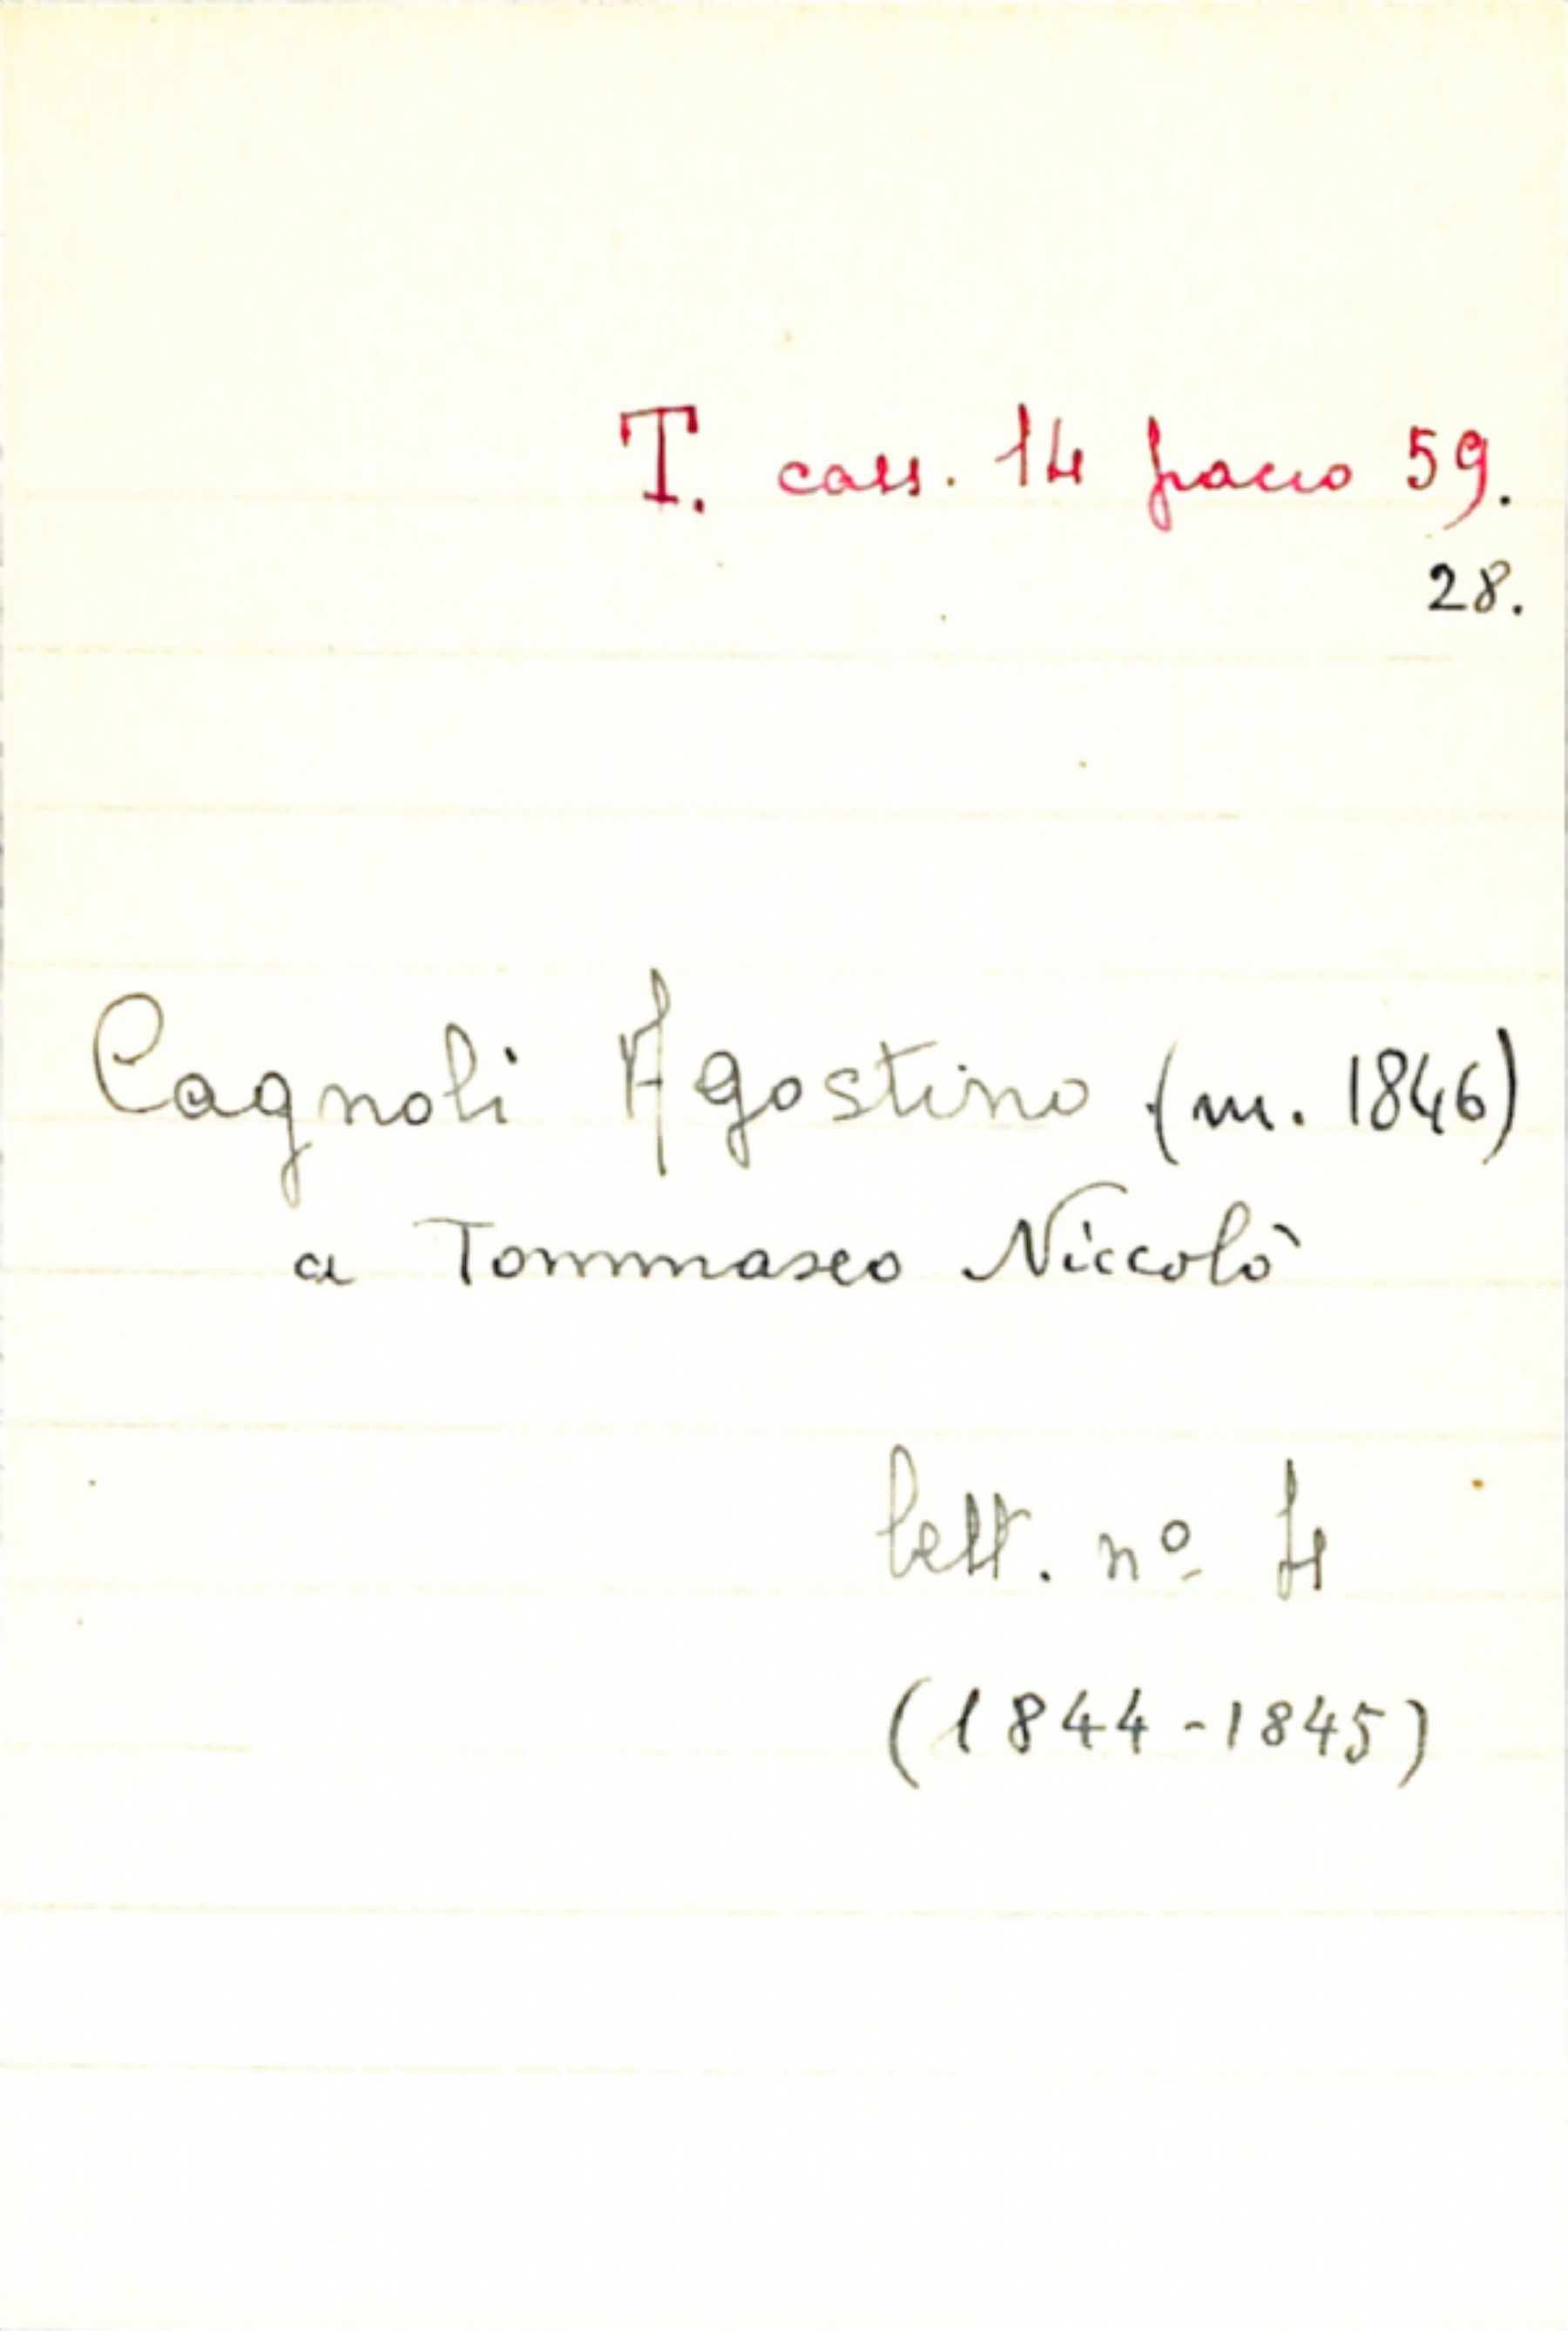 T. cass. 14 pacco 59.
28.
Cagnoli Agostino (m. 1846)
a Tommaseo Niccolò
lett. nº 4
(1844-1845)